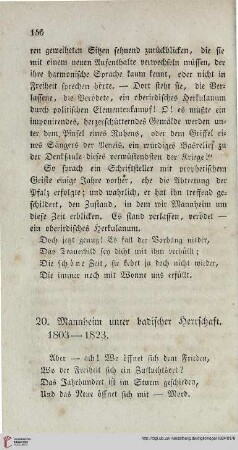 156
ren geweihten Sitzen sehnend zurückblicken, die sie
mit einem neuen Aufenthalte verwechseln müssen, der
ihre harmonische Sprache kaum kennt, oder nicht in
Freiheit sprechen hörte. — Dort steht sie, die Ver-
lassene, die Verödete, ein oberirdisches Herkulanum
durch politischen Elementenkampf! O! es müßte ein
imponirendes, herzerschütterndes Gemälde werden un-
ter dem Pinsel eines Rubens, oder dem Griffel ei-
nes Sängers der Vorzeit, ein würdiges Basrelief zu
der Denksäule dieses verwüstendsten der Kriege!"
So sprach ein Schriftsteller mit prophetischem
Geiste einige Jahre vorher, ehe die Abtretung der
Pfalz erfolgte; und wahrlich, er hat ihn treffend ge-
schildert, den Zustand, in dem wir Mannheim um
diese Zeit erblicken. Es stand verlassen, verödet —
ein oberirdisches Herkulanum.
Doch jetzt genug! Es fall der Vorhang nieder,
Das Trauerbild sey dicht mit ihm verhüllt;
Die schöne Zeit, sie kehrt ja doch nicht wieder,
Die immer noch mit Wonne uns erfüllt.
20. Mannheim unter badischer Herrschaft.
1803—1823.
Aber — ach! Wo öffnet sich dem Frieden,
Wo der Freiheit sich ein Zufluchtsort?
Das Jahrhundert ist im Sturm geschieden,
Und das Neue öffnet sich mit — Mord.